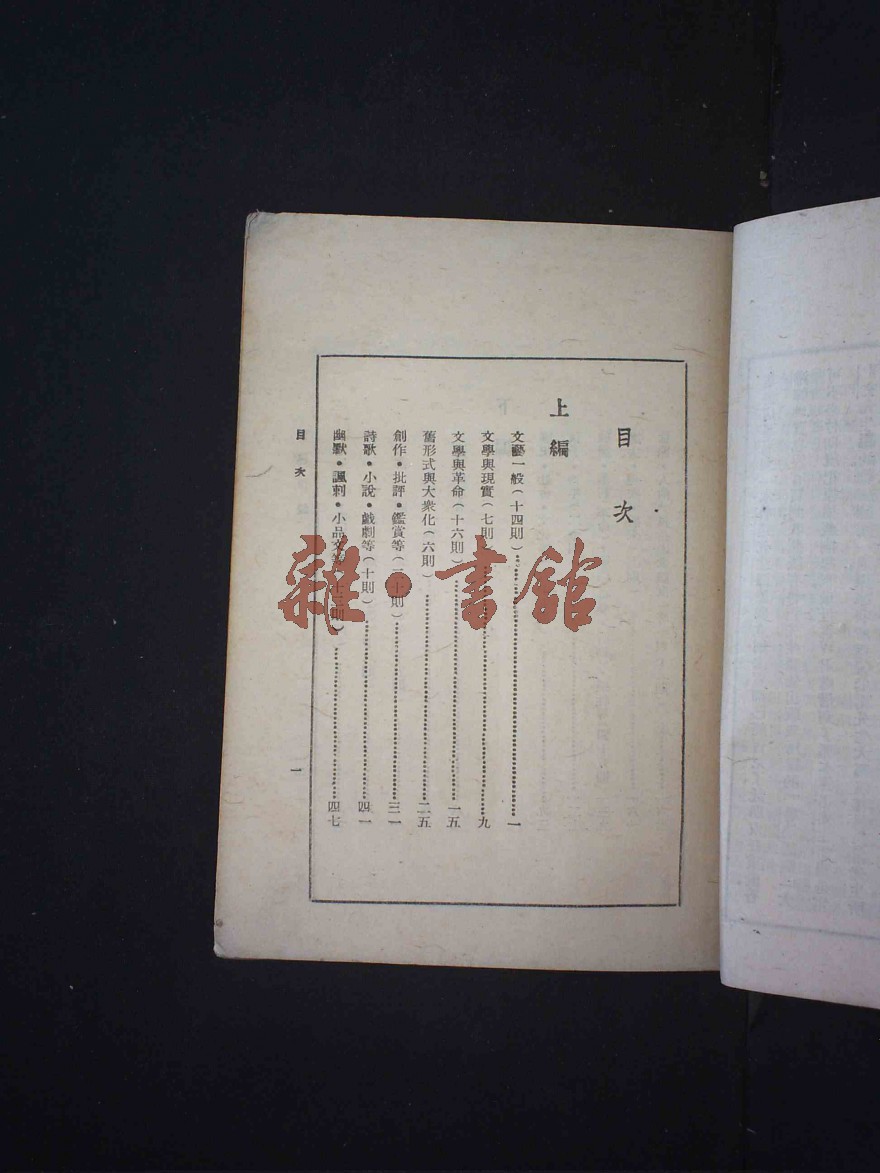 目次
上編
文藝一般(十四則)……一
文學與現實(七則)……九
文學與革命(十六則)……一五
舊形式與大衆化(六則)……二五
創作•批評•鑑賞等(二十則)……三一
詩歌•小說•戲劇等(十則)……四一
幽默•諷刺•小品文等(十三則)……四七
目次
一
雜•書館